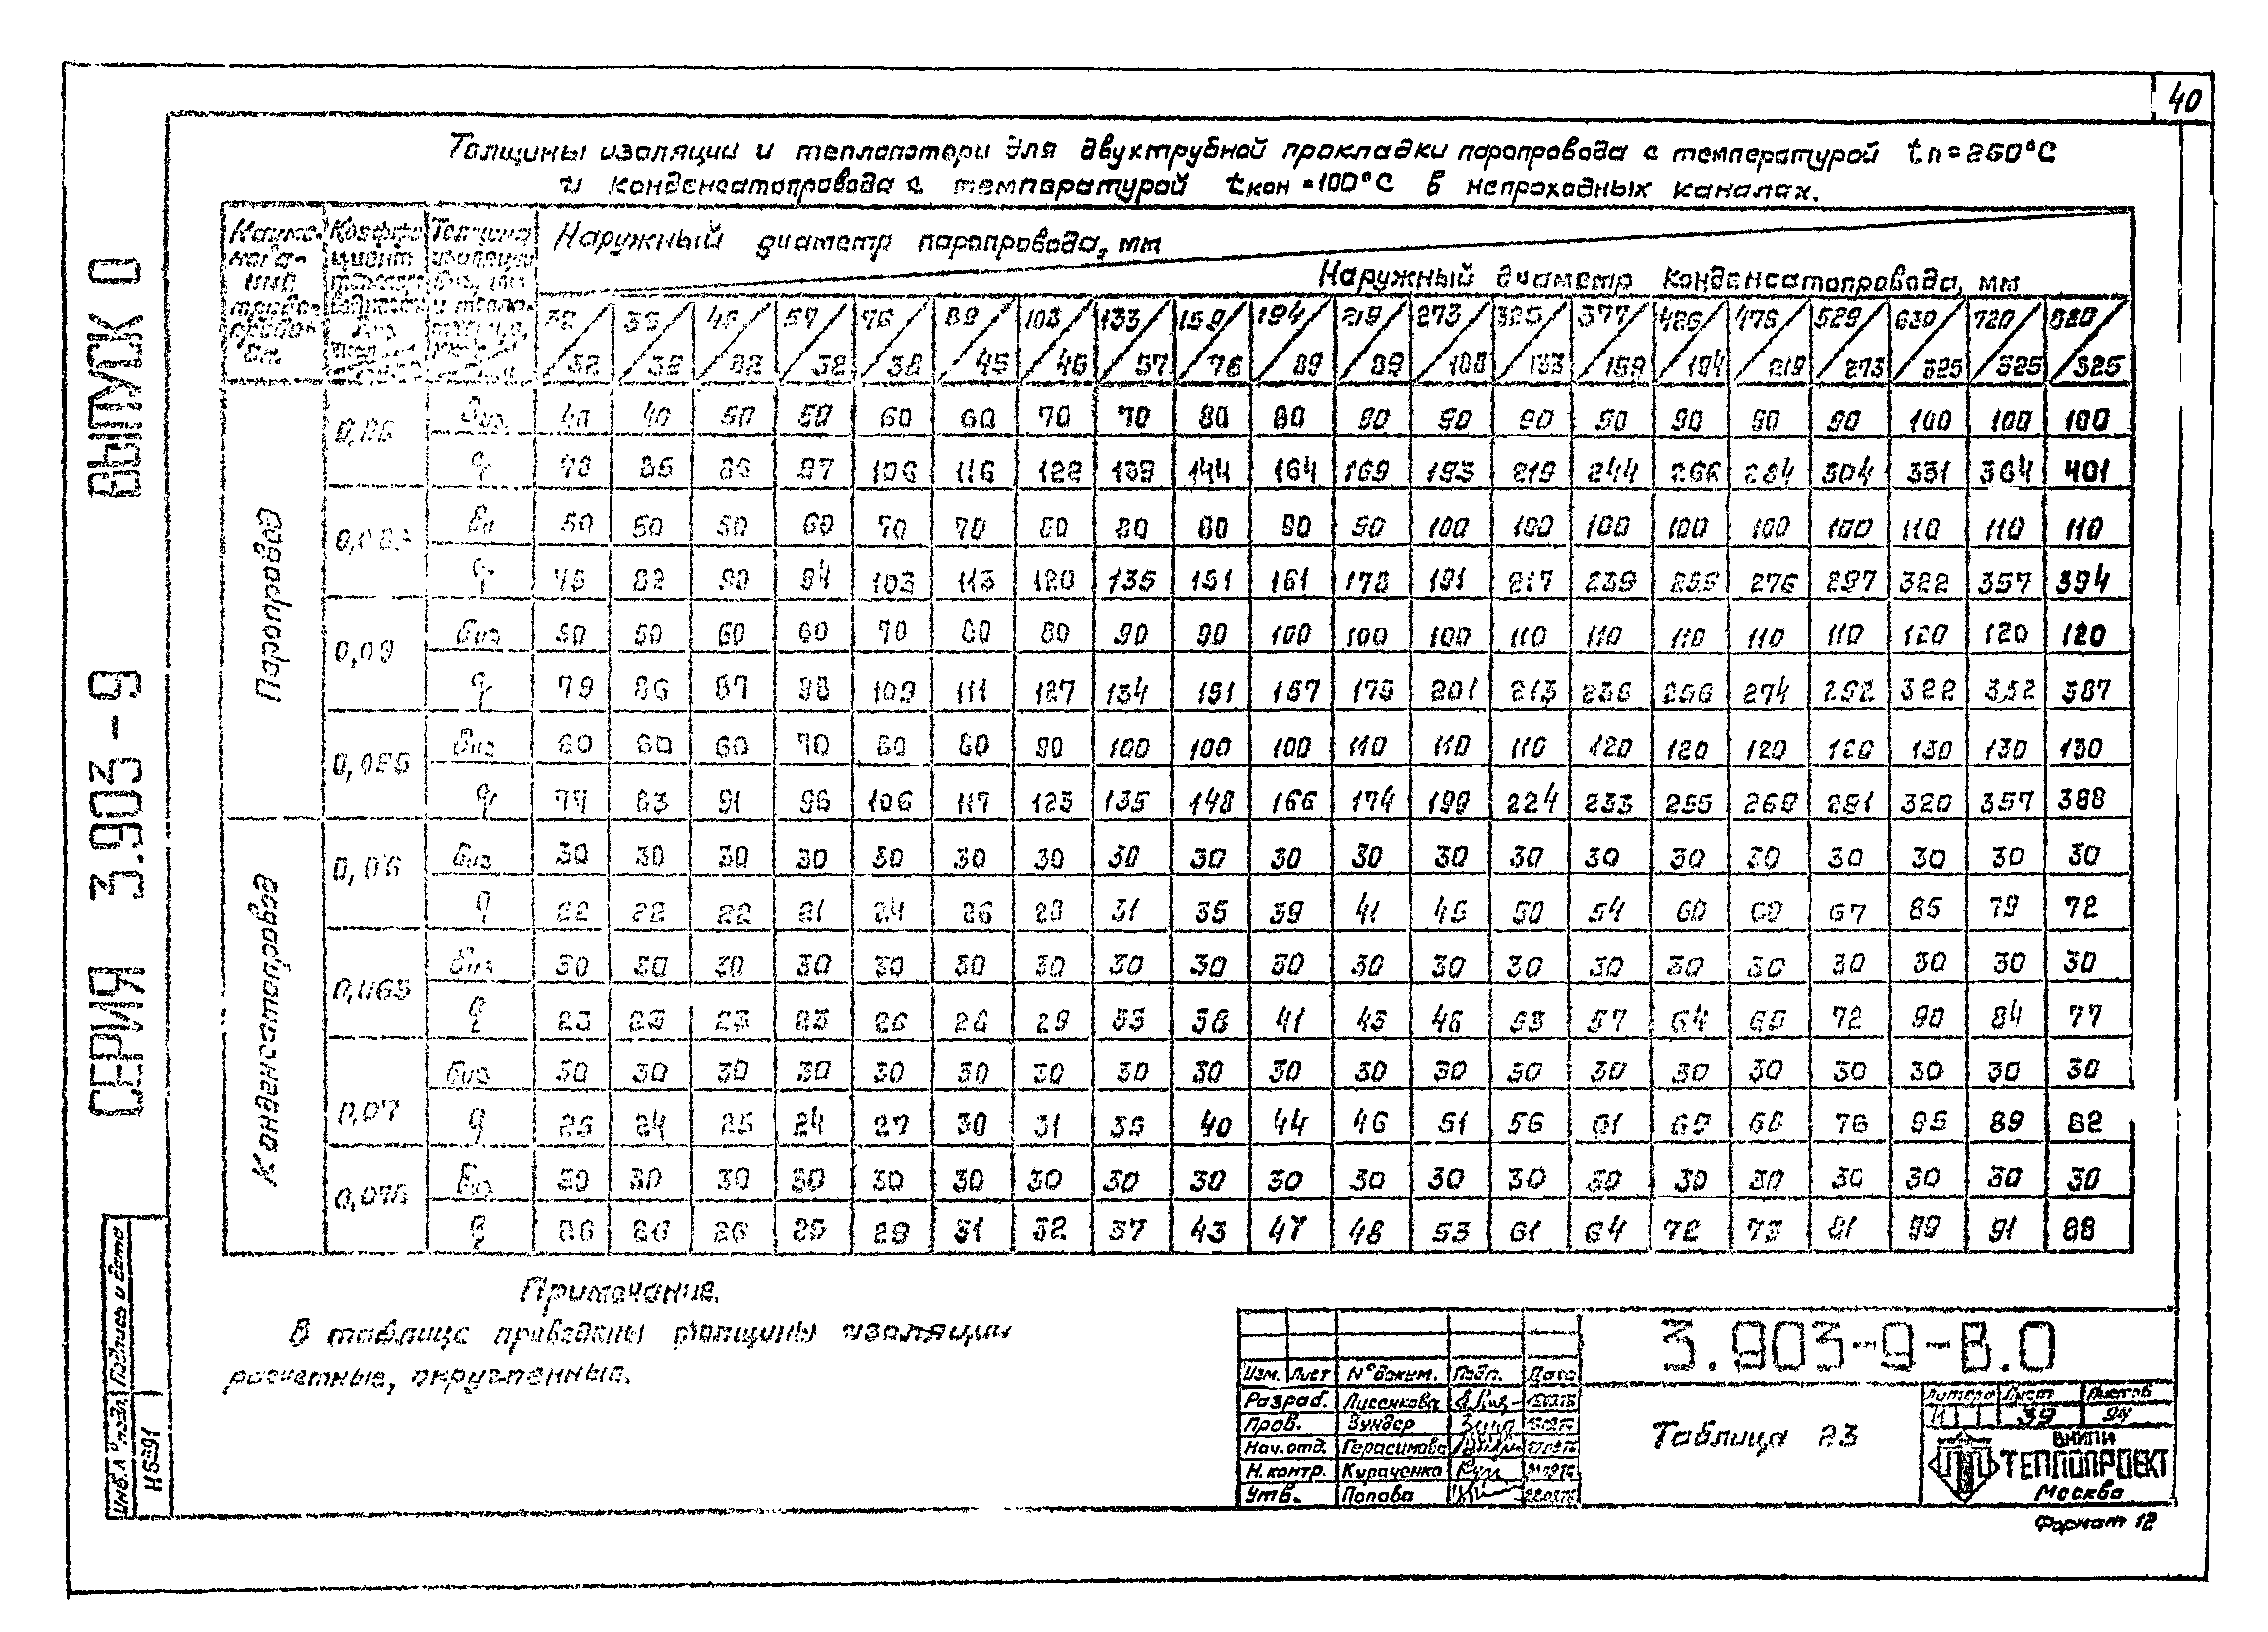 40
Толщины изоляции и теплопотери для двухтрубной прокладки паропровода с температурой tп=250°С
и конденсатопровода с температурой tкон=100°С в непроходных каналах.
СЕРИЯ 3.903-9 ВЫПУСК 0
Толщина изоляции
Наружный диаметр паропровода, мм
Наружный диаметр конденсатопровода, мм
32/32 38/32 45/32 57/32 76/38 89/45 108/45 133/57 159/76 194/89 219/89 273/108 325/133 377/159 426/194 476/219 529/273 630/325 720/325 820/325
Паропровод
0,08 δиз 40 40 50 50 60 60 70 70 80 80 90 90 90 90 90 90 90 100 100 100
q 78 85 86 97 106 116 122 139 144 164 169 193 219 244 266 284 304 331 364 401
δиз 50 50 50 60 70 70 80 80 80 90 90 100 100 100 100 100 100 110 110 110
q 75 82 90 94 103 113 120 135 151 161 178 191 217 239 259 276 297 322 357 394
0,09 δиз 50 50 60 60 70 80 80 90 90 100 100 100 110 110 110 110 110 120 120 120
q 79 86 87 98 109 111 127 134 151 157 175 201 213 236 256 274 292 322 352 387
0,095 δиз 60 60 60 70 80 80 90 100 100 100 110 110 110 120 120 120 120 130 130 130
q 77 83 91 96 106 117 123 135 148 166 174 199 224 233 255 269 291 320 357 388
Конденсатопровод
0,06 δиз 30 30 30 30 30 30 30 30 30 30 30 30 30 30 30 30 30 30 30 30
q 22 22 22 21 24 26 28 31 35 39 41 45 50 54 60 60 67 85 79 72
0,065 δиз 30 30 30 30 30 30 30 30 30 30 30 30 30 30 30 30 30 30 30 30
q 23 23 23 23 26 28 29 33 38 41 43 46 53 57 64 65 72 90 84 77
0,07 δиз 30 30 30 30 30 30 30 30 30 30 30 30 30 30 30 30 30 30 30 30
q 25 24 25 24 27 30 31 35 40 44 46 51 56 61 69 68 76 95 89 82
0,075 δиз 30 30 30 30 30 30 30 30 30 30 30 30 30 30 30 30 30 30 30 30
q 26 26 26 25 29 31 32 37 43 47 48 53 61 64 72 73 81 99 91 88
Примечание.
В таблице приведены толщины изоляции
расчетные, округленные.
Инв. № подл. Подпись и дата
Изм. Лист № докум. Подп. Дата
Разраб. Лисенкова
Пров. Зундер
Нач. отд. Герасимова
Н. контр. Кураченко
Утв. Попова
3.903-9-В.0
Таблица 23
Литера Лист Листов
И 39
ВНИПИ
ТЕПЛОПРОЕКТ
Москва
Формат 12